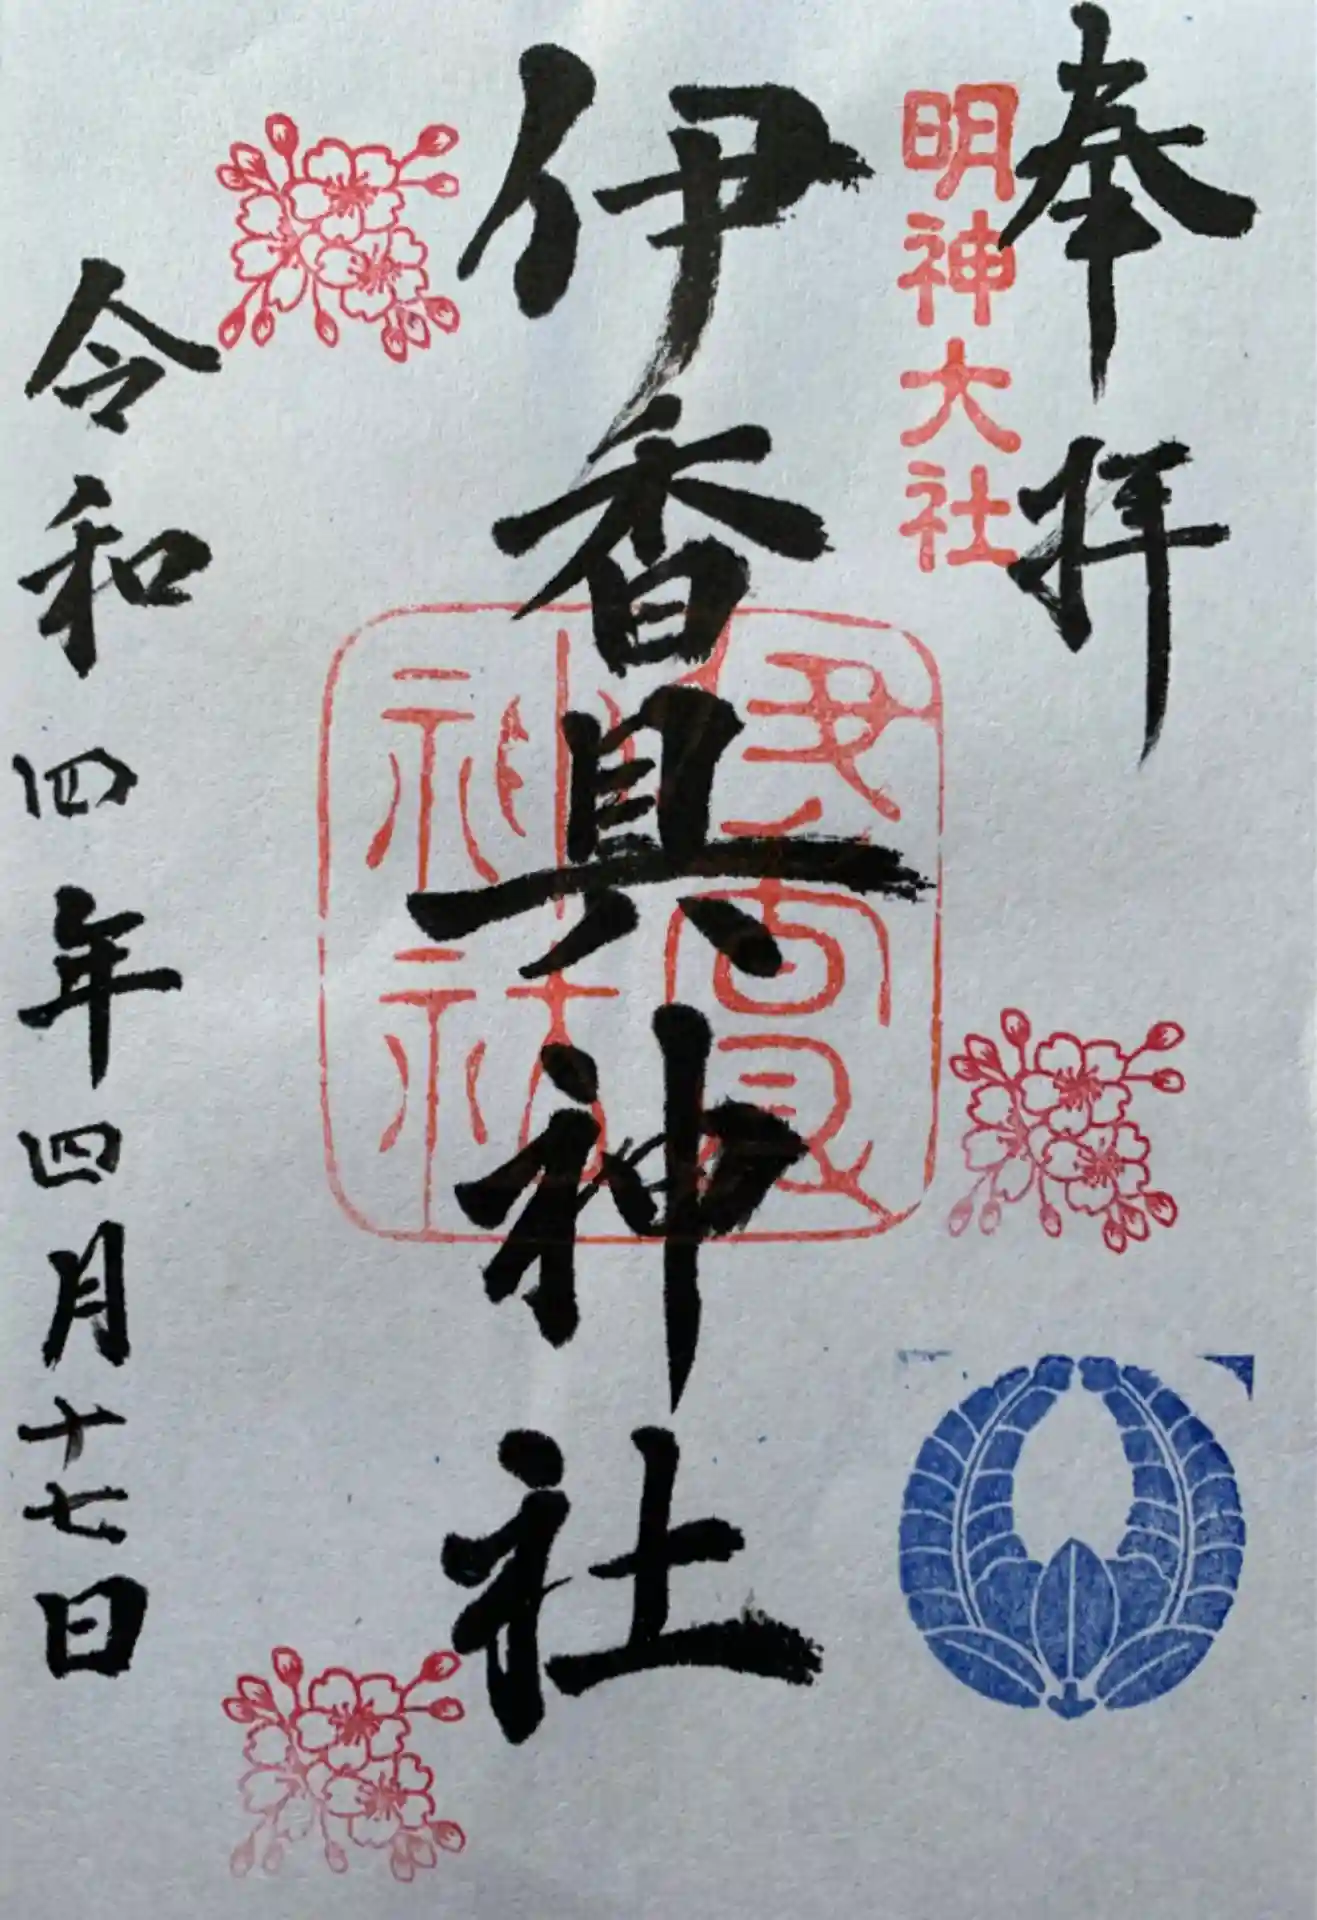 奉拝
明神大社
伊香具神社
伊香具
神社
令和四年四月十七日